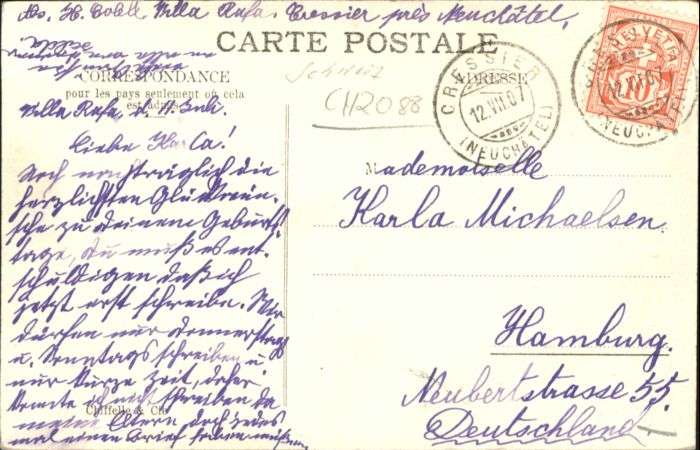 Villa Rafa. Cressier près Neuchâtel.
CARTE POSTALE
CORRESPONDANCE
pour les pays seulement où cela
est admis.
ADRESSE
Schweiz
CH2088
CRESSIER
12.VII.07
(NEUCHÂTEL)
HELVETIA
10
12.VII.07
(NEUCHÂTEL)
Villa Rafa, d. 11. Juli.
Liebe Karla!
Noch nachträglich die
herzlichsten Glückwün-
sche zu deinem Geburts-
tage, du mußt es ent-
schuldigen daß ich
jetzt erst schreibe. Wir
dürfen nur Donnerstags
u. Sonntags schreiben u.
nur kurze Zeit, daher
konnte ich nicht schreiben da
meine Eltern doch jedes
mal einen Brief haben müssen
Chiffelle & Cie
Mademoiselle
Karla Michaelsen.
Hamburg.
Neubertstrasse 55.
Deutschland.